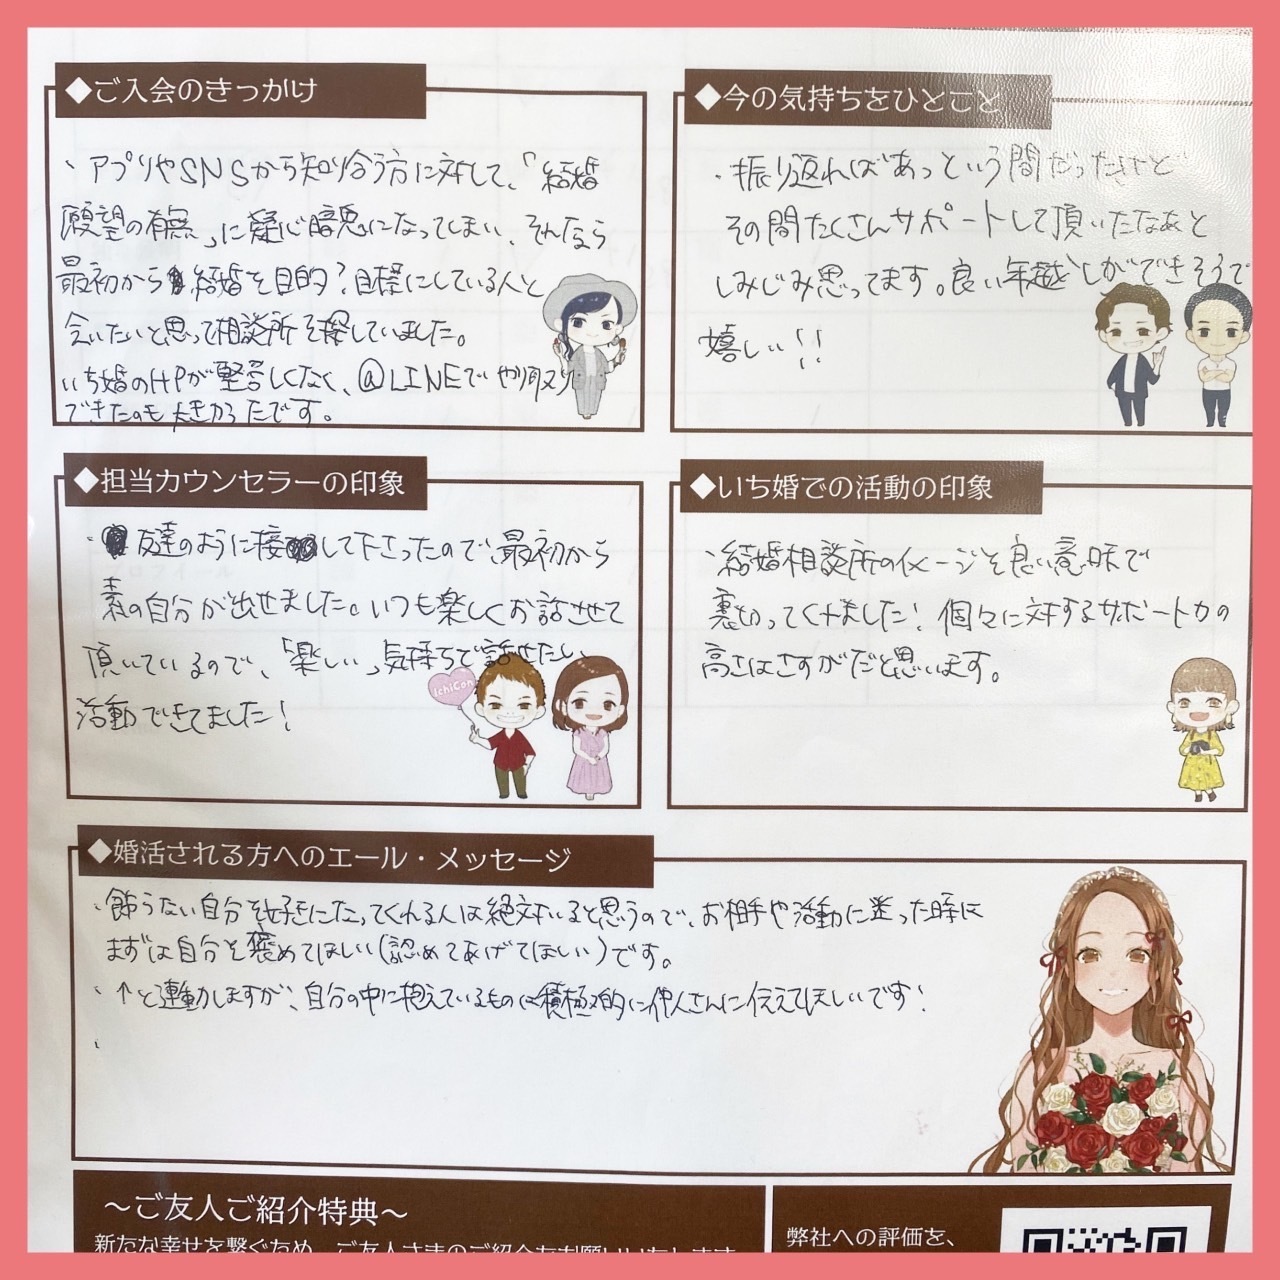 ◆ご入会のきっかけ
・アプリやSNSから知り合う方に対して、「結婚
願望の有無」に疑心暗鬼になってしまい、それなら
最初から結婚を目的?目標にしている人と
会いたいと思って相談所を探していました。
いち婚のHPが堅苦しくなく、@LINEでやり取り
できたのも大きかったです。
◆今の気持ちをひとこと
・振り返ればあっという間だったけど
その間たくさんサポートして頂いたなぁと
しみじみ思ってます。良い年越しができそうで
嬉しい!!
◆担当カウンセラーの印象
・友達のように接して下さったので、最初から
素の自分が出せました。いつも楽しくお話させて
頂いているので、「楽しい」気持ちで話せたい
活動できてました!
IchiCon
◆いち婚での活動の印象
・結婚相談所のイメージを良い意味で
裏切ってくれました!個々に対するサポート力の
高さはさすがだと思います。
◆婚活される方へのエール・メッセージ
・飾らない自分を好きになってくれる人は絶対いると思うので、お相手や活動に迷った時は
まずは自分を褒めてほしい(認めてあげてほしい)です。
・↑と連動しますが、自分の中に抱えているものは積極的に仲人さんに伝えてほしいです!
・
～ご友人ご紹介特典～
新たな幸せを繋ぐため、ご友人さまのご紹介をお願いいたします
弊社への評価を、